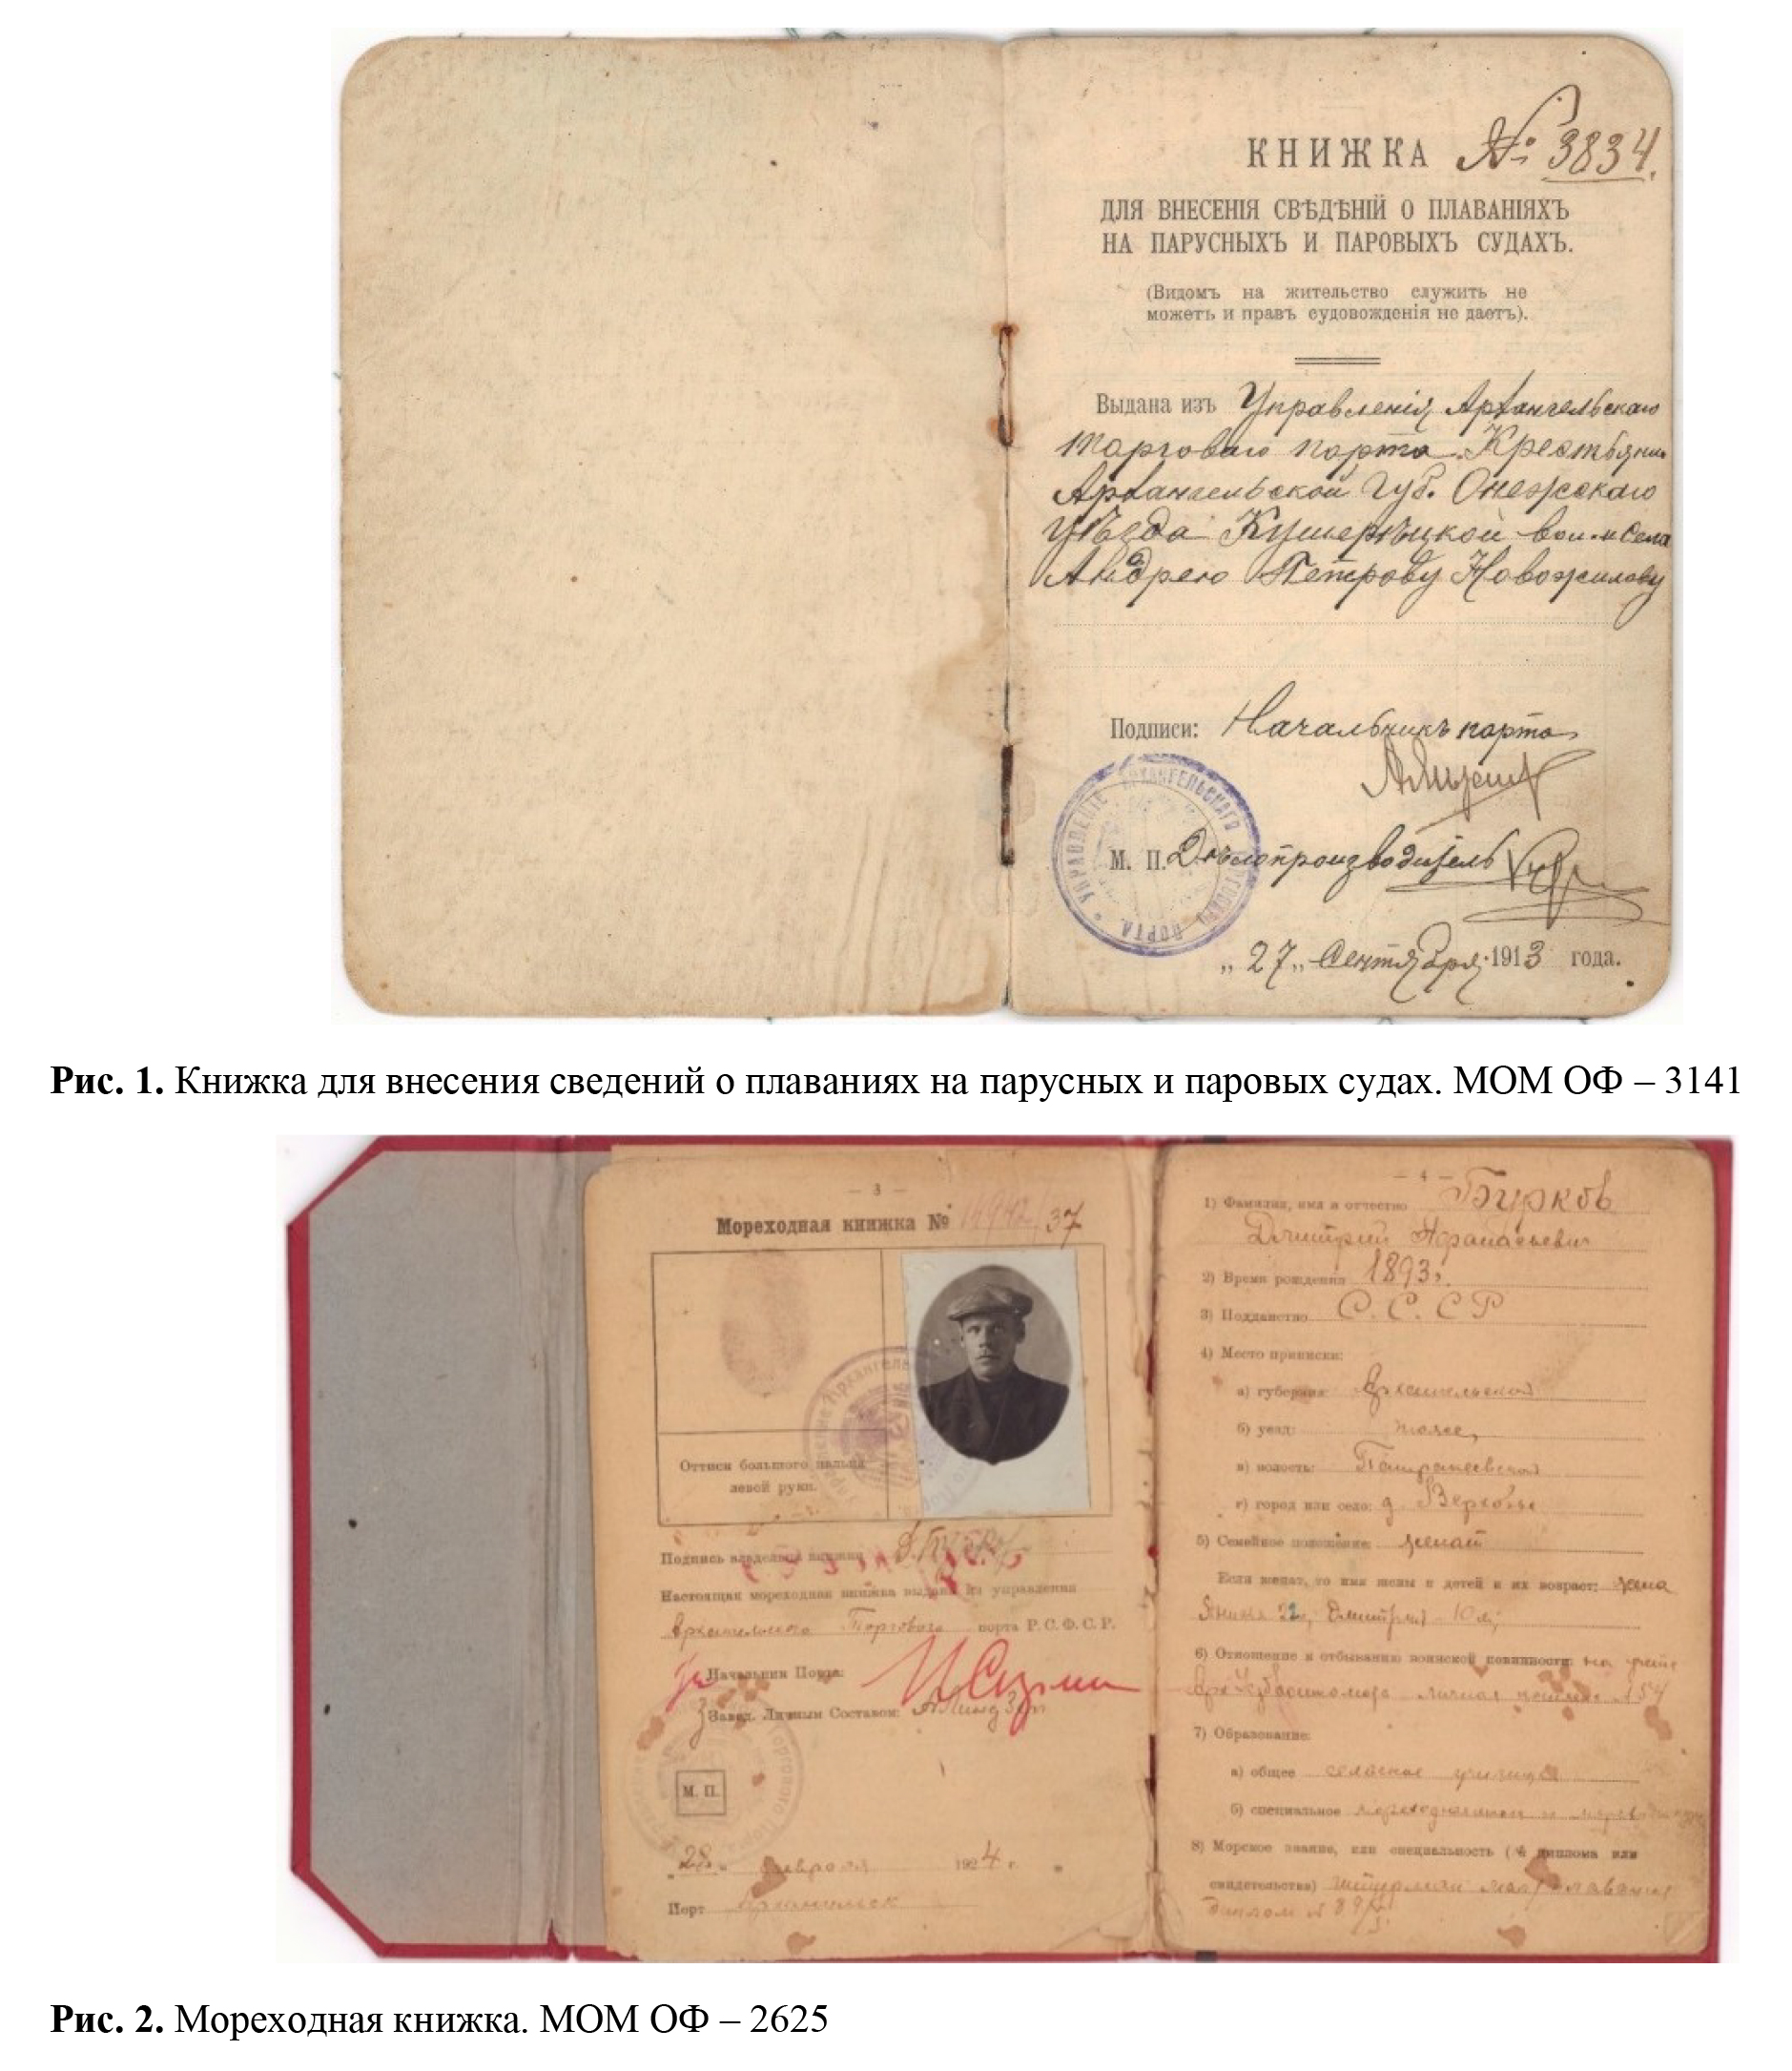 КНИЖКА № 3834.
ДЛЯ ВНЕСЕНІЯ СВѢДѢНІЙ О ПЛАВАНІЯХЪ
НА ПАРУСНЫХЪ И ПАРОВЫХЪ СУДАХЪ.
(Видомъ на жительство служить не
можетъ и правъ судовожденія не даетъ).
Выдана изъ Управленія Архангельскаго
торговаго порта Крестьянину
Архангельской губ. Онежскаго
уѣзда Кушерѣцкой вол. и села
Андрею Петрову Новожилову
Подписи: Начальникъ порта
УПРАВЛЕНІЕ АРХАНГЕЛЬСКАГО ТОРГОВАГО ПОРТА
М. П. Дѣлопроизводитель
„27„ Сентября 1913 года.
Рис. 1. Книжка для внесения сведений о плаваниях на парусных и паровых судах. МОМ ОФ – 3141
— 3 —
Мореходная книжка № 37
Оттиск большого пальца
левой руки.
Подпись владельца книжки Д. Бурков
Настоящая мореходная книжка выдана из управления
Архангельского Торгового порта Р.С.Ф.С.Р.
Начальник Порта:
Завед. Личным Составом:
М. П.
„28„ февраля 1924 г.
Порт Архангельск
— 4 —
1) Фамилия, имя и отчество Бурков
Дмитрий Афанасьевич
2) Время рождения 1893 г.
3) Подданство С.С.С.Р
4) Место приписки:
а) губерния: Архангельской
б) уезд: тоже,
в) волость: Патракеевской
г) город или село: д. Верховье
5) Семейное положение: женат
Если женат, то имя жены и детей и их возраст: жена
22, Дмитрий 10 л;
6) Отношение к отбыванию воинской повинности: на учете
личная № 54
7) Образование:
а) общее сельское училище
б) специальное
8) Морское звание, или специальность (№ диплома или
свидетельства) штурман мал. плавания
диплом № 89
Рис. 2. Мореходная книжка. МОМ ОФ – 2625